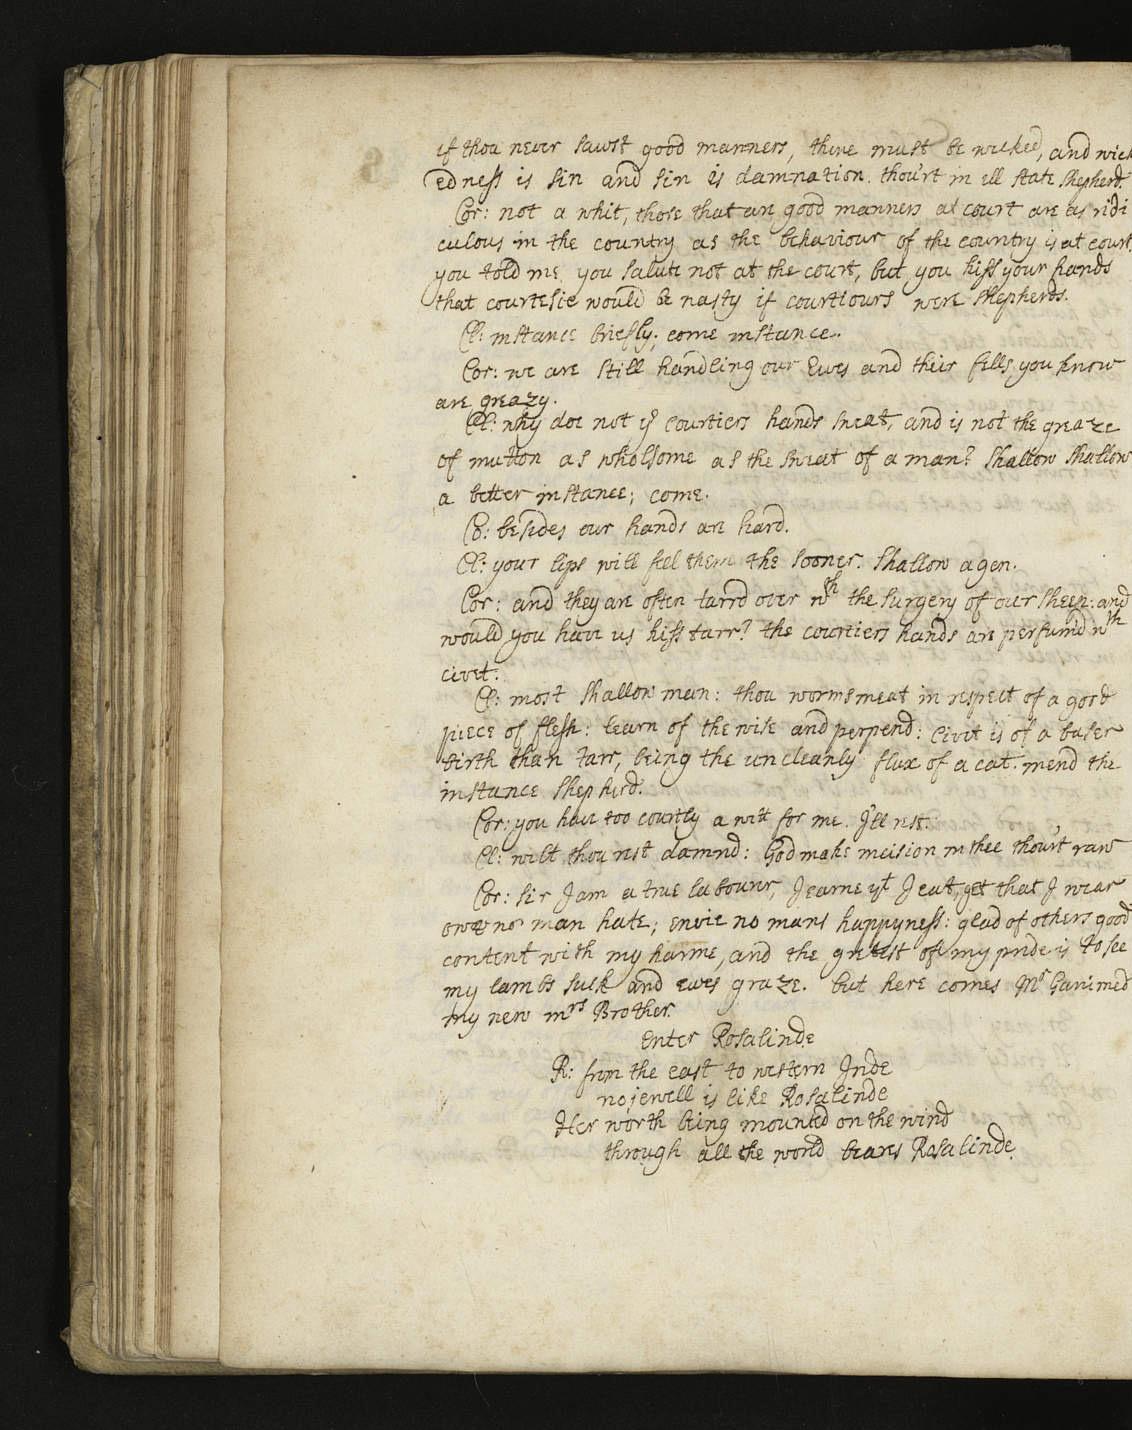 if thou never sawst good manners, thine must be wicked, and wick
edness is sin and sin is damnation. thou'rt in ill state shepherd.
Cor: not a whit, those that are good manners at court are as ridi
culous in the country as the behaviour of the country is at court.
you told me you salute not at the court, but you kiss your hands
that courtesie would be nasty if courtiours were shepherds.
Cl: instance briefly; come instance.
Cor: we are still handling our Ewes and their fells you know
are greazy.
Cl: why doe not yr courtiers hands sweat, and is not the greaze
of mutton as wholsome as the sweat of a man? shallow shallow
a better instance; come.
Co: besides our hands are hard.
Cl: your lips will feel them the sooner. shallow agen.
Cor: and they are often tarrd over wth the surgery of our sheep: and
would you have us kiss tarr? the courtiers hands are perfum'd wth
civet.
Cl: most shallow man: thou wormsmeat in respect of a good
piece of flesh: learn of the wise and perpend: civit is of a baser
birth than tarr, being the uncleanly flux of a cat. mend the
instance shepherd.
Cor: you have too courtly a witt for me. I'll rest.
Cl: wilt thou rest damnd: God make incision in thee thou'rt raw
Cor: sir I am a true labourer, I earne yt I eat, get that I wear
owe no man hate, envie no mans happyness: glad of others good
content with my harme, and the greatest of my pride is to see
my lambs suck and ewes graze. but here comes Mr Ganimed
my new mrs Brother.
Enter Rosalinde
R: from the east to western Inde
no jewell is like Rosalinde
Her worth being mounted on the wind
through all the world beares Rosalinde.